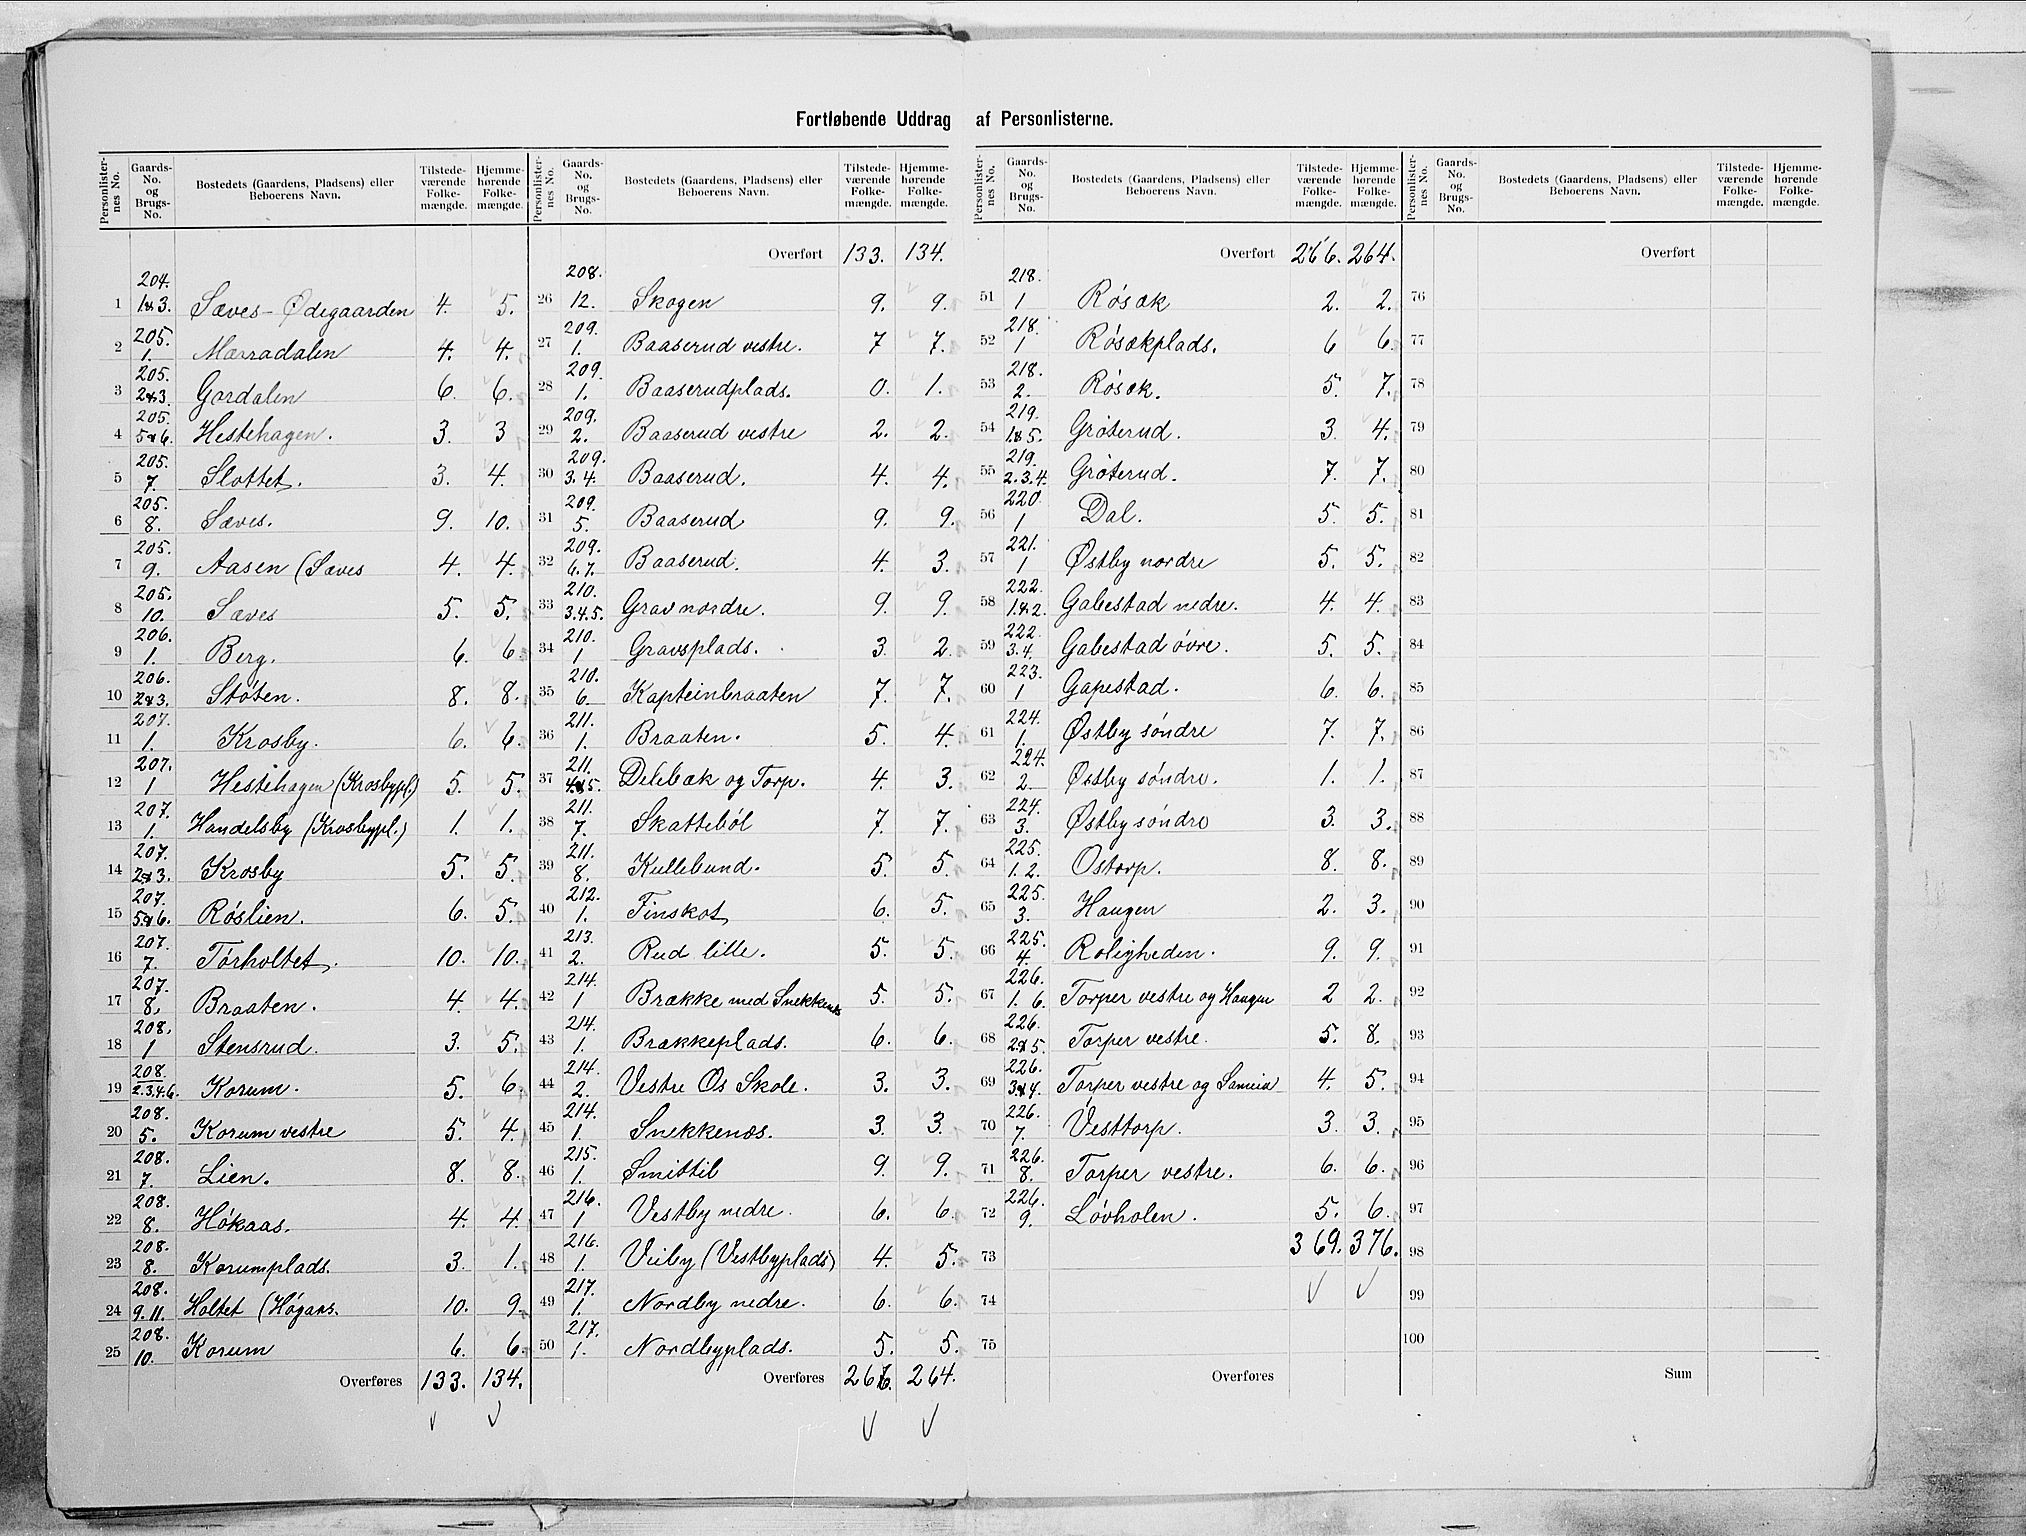 Fortløbende Uddrag af Personlisterne.
Personlisternes No. | Gaards-No. og Brugs-No. | Bostedets (Gaardens, Pladsens) eller Beboerens Navn. | Tilstedeværende Folkemængde. | Hjemmehørende Folkemængde.
1 | 204. 1&3. | Sæves-Ødegaarden | 4. | 5.
2 | 205. 1. | Marradalen | 4. | 4.
3 | 205. 2&3. | Gardalen | 6. | 6.
4 | 205. 5&6. | Hestehagen. | 3. | 3
5 | 205. 7. | Slottet. | 3. | 4.
6 | 205. 8. | Sæves. | 9. | 10.
7 | 205. 9. | Aasen (Sæves | 4. | 4.
8 | 205. 10. | Sæves | 5. | 5.
9 | 206. 1. | Berg. | 6. | 6.
10 | 206. 2&3. | Støten. | 8. | 8.
11 | 207. 1. | Krosby. | 6. | 6.
12 | 207. 1 | Hestehagen (Krosbypl.) | 5. | 5.
13 | 207. 1. | Handelsby (Krosbypl.) | 1. | 1.
14 | 207. 2&3. | Krosby | 5. | 5.
15 | 207. 5&6. | Røslien. | 6. | 5.
16 | 207. 7. | Tørholtet. | 10. | 10.
17 | 207. 8. | Braaten. | 4. | 4.
18 | 208. 1 | Stensrud. | 3. | 5.
19 | 208. 2.3.4.6. | Korum. | 5. | 6.
20 | 208. 5. | Korum vestre | 5. | 4.
21 | 208. 7. | Lien. | 8. | 8.
22 | 208. 8. | Høkaas. | 4. | 4.
23 | 208. 8. | Korumplads. | 3. | 1.
24 | 208. 9.11. | Holtet (Høgaas. | 10. | 9.
25 | 208. 10. | Korum | 6. | 6.
Overføres 133. 134.
Personlisternes No. | Gaards-No. og Brugs-No. | Bostedets (Gaardens, Pladsens) eller Beboerens Navn. | Tilstedeværende Folkemængde. | Hjemmehørende Folkemængde.
Overført 133. 134.
26 | 208. 12. | Skogen | 9. | 9.
27 | 209. 1. | Baaserud vestre. | 7 | 7.
28 | 209. 1. | Baaserudplads. | 0. | 1.
29 | 209. 2. | Baaserud vestre | 2. | 2.
30 | 209. 3.4. | Baaserud. | 4. | 4.
31 | 209. 5. | Baaserud | 9. | 9.
32 | 209. 6.7. | Baaserud. | 4. | 3.
33 | 210. 3.4.5. | Grav nordre. | 9. | 9.
34 | 210. 1 | Gravsplads. | 3. | 2.
35 | 210. 6. | Kapteinbraaten | 7. | 7.
36 | 211. 1. | Braaten. | 5. | 4.
37 | 211. 4&5. | Delebæk og Torp. | 4. | 3.
38 | 211. 7. | Skattebøl | 7. | 7.
39 | 211. 8. | Kullebund. | 5. | 5.
40 | 212. 1. | Finskot | 6. | 5.
41 | 213. 2. | Rud lille. | 5. | 5.
42 | 214. 1 | Brække med Snekkenes | 5. | 5.
43 | 214. 1. | Brækkeplads. | 6. | 6.
44 | 214. 2. | Vestre Os Skole. | 3. | 3.
45 | 214. 1. | Snekkenæs. | 3. | 3.
46 | 215. 1. | Smittil | 9. | 9.
47 | 216. 1 | Vestby nedre. | 6. | 6.
48 | 216. 1. | Veiby (Vestbyplads) | 4. | 5.
49 | 217. 1. | Nordby nedre. | 6. | 6.
50 | 217. 1. | Nordbyplads. | 5. | 5.
Overføres 266. 264.
Personlisternes No. | Gaards-No. og Brugs-No. | Bostedets (Gaardens, Pladsens) eller Beboerens Navn. | Tilstedeværende Folkemængde. | Hjemmehørende Folkemængde.
Overført 266. 264.
51 | 218. 1 | Røsæk | 2. | 2.
52 | 218. 1 | Røsækplads. | 6 | 6.
53 | 218. 2. | Røsæk. | 5. | 7.
54 | 219. 1.&5. | Grøterud. | 3. | 4.
55 | 219. 2.3.4. | Grøterud. | 7. | 7.
56 | 220. 1 | Dal. | 5. | 5.
57 | 221. 1 | Østby nordre | 5. | 5.
58 | 222. 1.&2. | Gabestad nedre. | 4. | 4.
59 | 222. 3.4. | Gabestad øvre. | 5. | 5.
60 | 223. 1 | Gapestad. | 6. | 6.
61 | 224. 1. | Østby søndre | 7. | 7.
62 | 224. 2. | Østby søndre. | 1. | 1.
63 | 224. 3. | Østby søndre | 3. | 3.
64 | 225. 1.2. | Ostorp. | 8. | 8.
65 | 225. 3. | Haugen | 2. | 3.
66 | 225. 4. | Roligheden. | 9. | 9.
67 | 226. 1. 6. | Torper vestre og Haugen | 2 | 2.
68 | 226. 2&5. | Torper vestre. | 5. | 8.
69 | 226. 3&4. | Torper vestre og | 4. | 5.
70 | 226. 7. | Vesttorp. | 3. | 3.
71 | 226. 8. | Torper vestre. | 6. | 6.
72 | 226. 9. | Løvholen. | 5. | 6.
73 | 369. | 376.
74
75
Overføres
Personlisternes No. | Gaards-No. og Brugs-No. | Bostedets (Gaardens, Pladsens) eller Beboerens Navn. | Tilstedeværende Folkemængde. | Hjemmehørende Folkemængde.
Overført
76
77
78
79
80
81
82
83
84
85
86
87
88
89
90
91
92
93
94
95
96
97
98
99
100
Sum